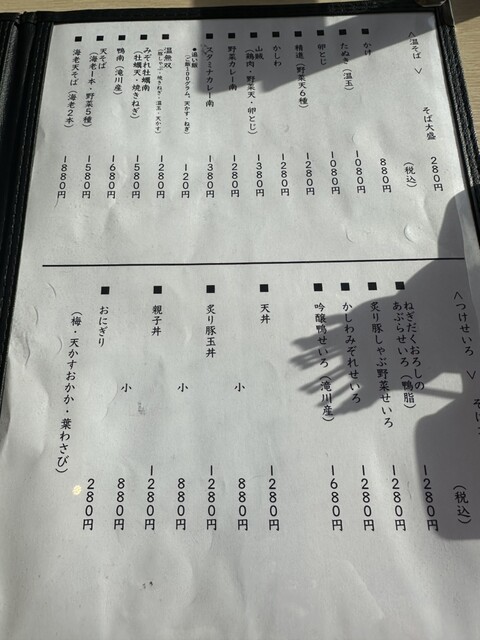 <温そば> そば大盛 280円
(税込)
■かけ 880円
■たぬき(温玉) 1080円
■卵とじ 1080円
■精進(野菜天6種) 1280円
■かしわ 1280円
■山賊
(鶏肉・野菜天・卵とじ) 1380円
■野菜カレー南 1280円
■スタミナカレー南 1380円
●追い飯
(ご飯100グラム、天かす・ねぎ) 120円
■温無双
1280円
■みぞれ牡蠣南
(牡蠣天・焼きねぎ) 1580円
■鴨南(滝川産) 1680円
■天そば
(海老1本・野菜5種) 1580円
■海老天そば(海老2本) 1880円
<つけせいろ>
(税込)
■ねぎだくおろしの
あぶらせいろ(鴨脂) 1280円
■炙り豚しゃぶ野菜せいろ 1280円
■かしわみぞれせいろ 1280円
■吟醸鴨せいろ(滝川産) 1680円
■天丼 1280円
小 880円
■炙り豚玉丼 1280円
小 880円
■親子丼 1280円
小 880円
■おにぎり 280円
(梅・天かすおかか・葉わさび)